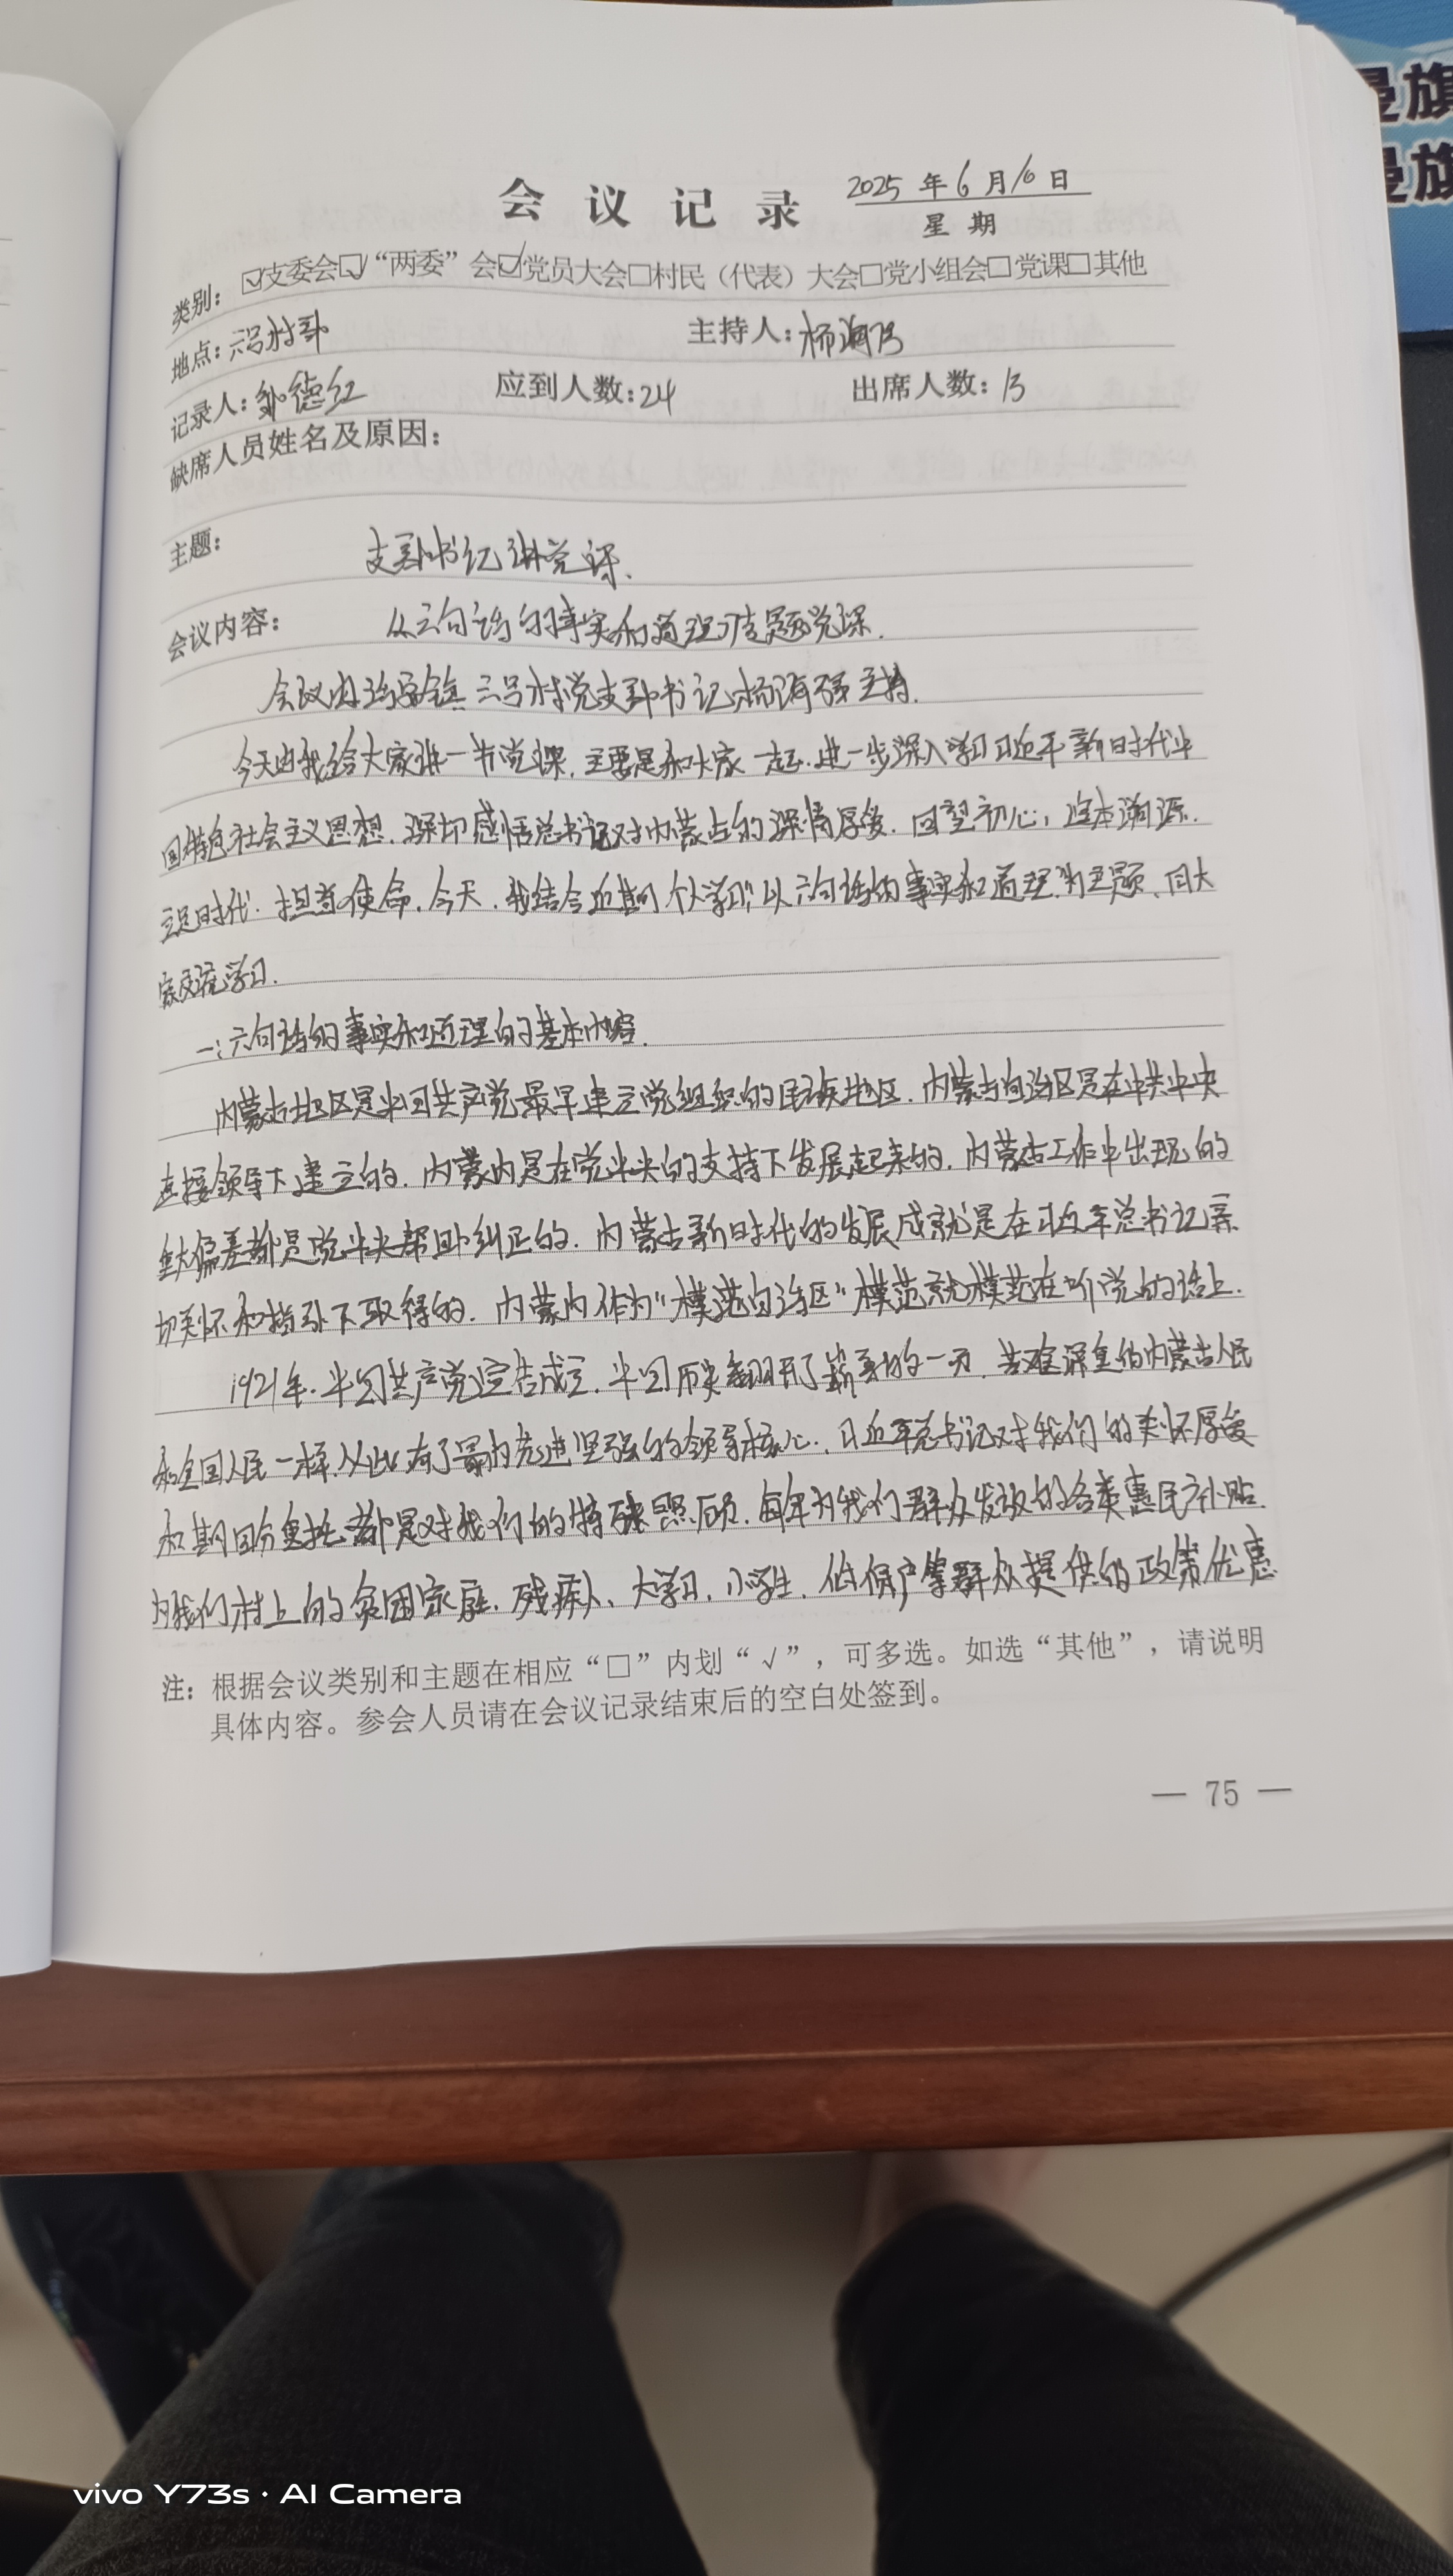 曼旗
曼旗
会议记录
2025 年 6 月 10 日
星期
类别：☑支委会☑“两委”会☑党员大会□村民（代表）大会□党小组会□党课□其他
地点：六号村部 主持人：杨海
记录人：德红 应到人数：24 出席人数：13
缺席人员姓名及原因：
主题： 支部书记讲党课.
会议内容： 从六句话的事实和道理专题党课.
会议由治安镇六号村党支部书记杨海 主持.
今天由我给大家讲一节党课.主要是和大家一起.进一步深入学习习近平新时代中
国特色社会主义思想.深切感悟总书记对内蒙古的深情厚爱.回望初心，追本溯源.
立足时代.担当使命.今天.我结合近期个人学习“以六句话的事实和道理”为主题、同大
家交流学习.
一：六句话的事实和道理的基本内容.
内蒙古地区是中国共产党最早建立党组织的民族地区.内蒙古自治区是在中共中央
直接领导下建立的.内蒙内是在党中央的支持下发展起来的.内蒙古工作中出现的
重大偏差都是党中央帮助纠正的.内蒙古新时代的发展成就是在习近平总书记亲
切关怀和指引下取得的.内蒙内作为“模范自治区”模范就模范在听党的话上.
1921年.中国共产党宣告成立.中国历史翻开了崭新的一页.苦难深重的内蒙古人民
和全国人民一样.从此有了最为先进坚强的领导核心.习近平总书记对我们的关怀厚爱
和期盼重托都是对我们的特殊照顾.每年为我们群众发放的各类惠民补贴
为我们村上的贫困家庭.残疾人、大学习.小学生.低保户等群众提供的政策优惠
注：根据会议类别和主题在相应“□”内划“√”，可多选。如选“其他”，请说明
具体内容。参会人员请在会议记录结束后的空白处签到。
— 75 —
vivo Y73s · AI Camera